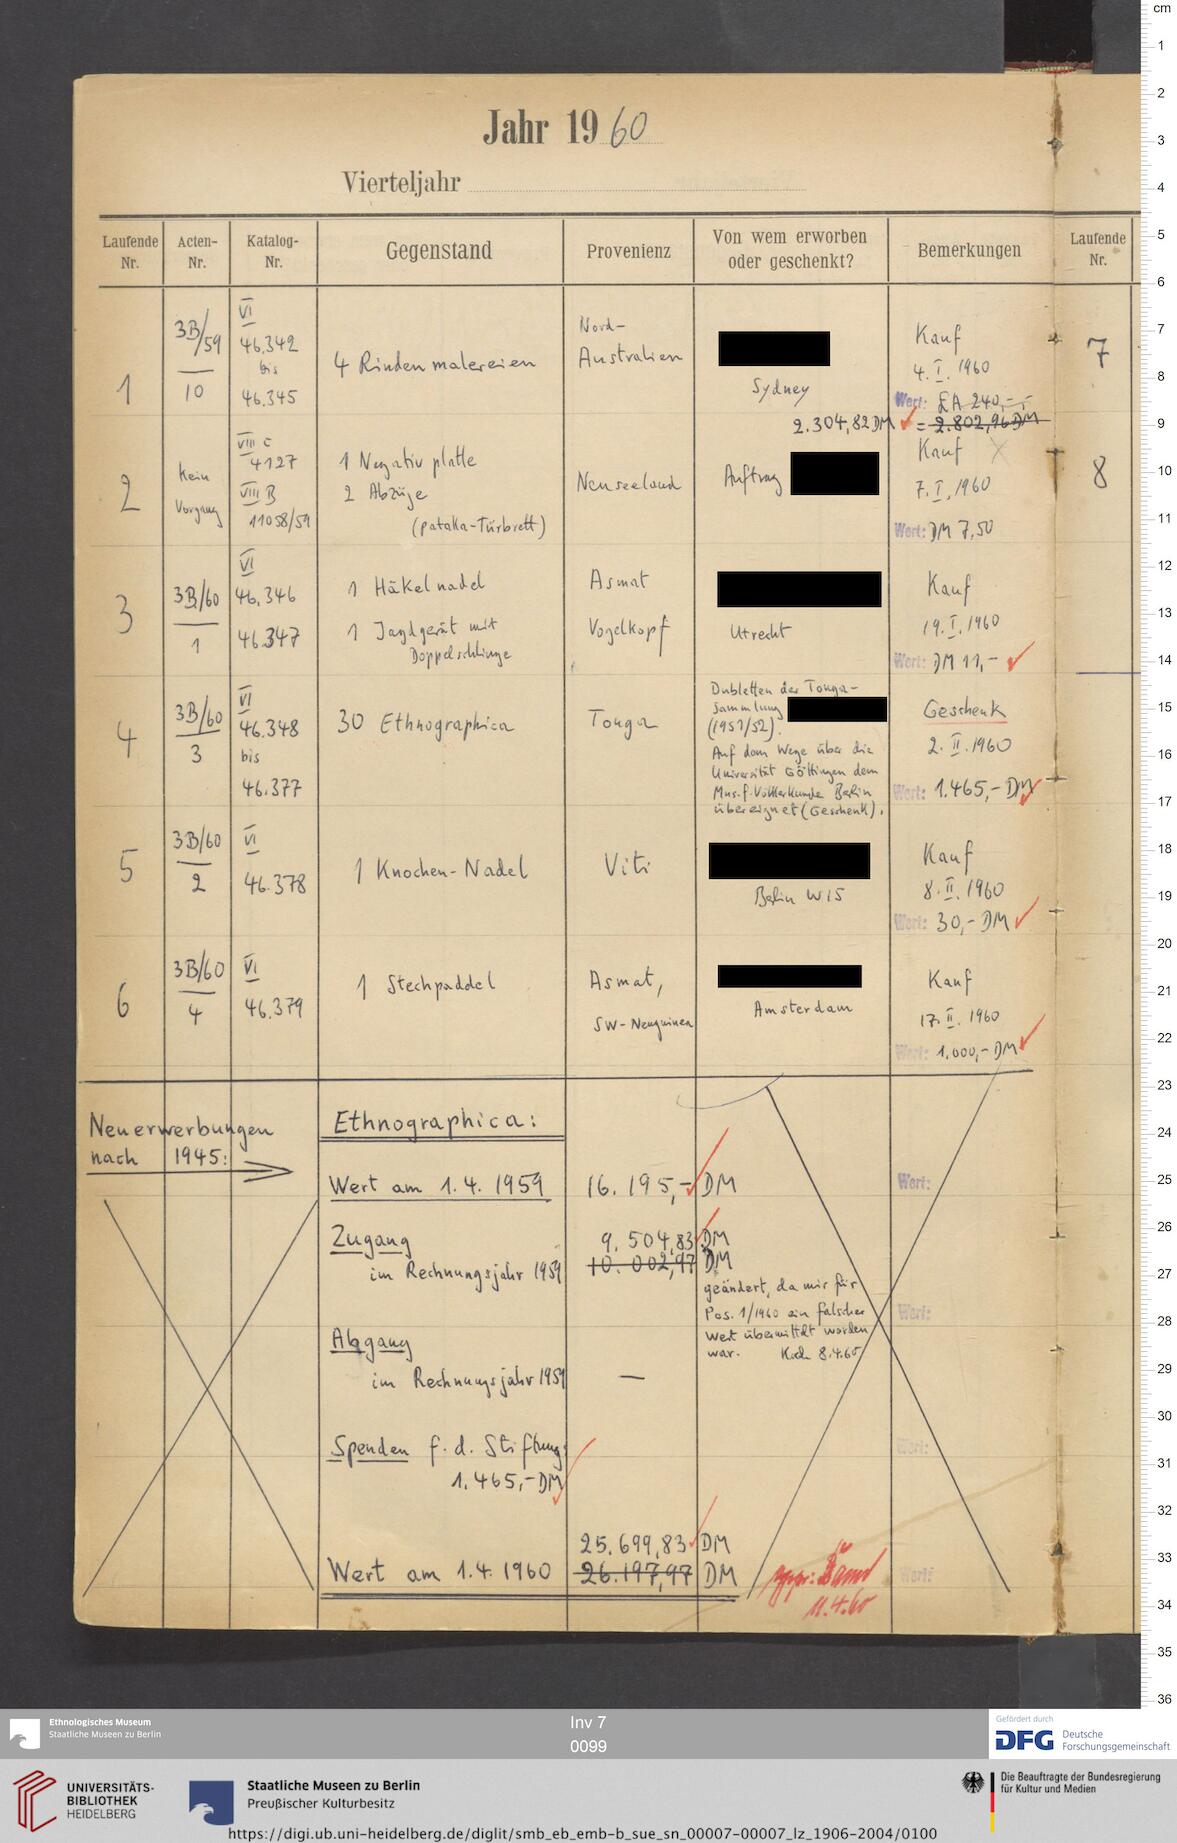 Jahr 1960
Vierteljahr
Laufende Nr.
Acten-Nr.
Katalog-Nr.
Gegenstand
Provenienz
Von wem erworben oder geschenkt?
Bemerkungen
Laufende Nr.
1
3B/59
10
VI
46.342
bis
46.345
4 Rindenmalereien
Nord-
Australien
Sydney
Kauf
4. I. 1960
Wert: £A 240,-,-
2.304,82 DM = 2.802,96 DM
7
2
Kein
Vorgang
VIII C
4127
VIII B
11058/59
1 Negativplatte
2 Abzüge
(pataka-Türbrett)
Neuseeland
Auftrag
Kauf
7. I. 1960
Wert: DM 7,50
8
3
3B/60
1
VI
46.346
46.347
1 Häkelnadel
1 Jagdgerät mit
Doppelschlinge
Asmat
Vogelkopf
Utrecht
Kauf
19. I. 1960
Wert: DM 11,-
4
3B/60
3
VI
46.348
bis
46.377
30 Ethnographica
Tonga
Dubletten der Tonga-
Sammlung
(1951/52).
Auf dem Wege über die
Universität Göttingen dem
Mus. f. Völkerkunde Berlin
übereignet (Geschenk).
Geschenk
2. II. 1960
Wert: 1.465,- DM
5
3B/60
2
VI
46.378
1 Knochen-Nadel
Viti
Berlin W15
Kauf
8. II. 1960
Wert: 30,- DM
6
3B/60
4
VI
46.379
1 Stechpaddel
Asmat,
SW-Neuguinea
Amsterdam
Kauf
17. II. 1960
Wert: 1.000,- DM
Neuerwerbungen
nach 1945:
Ethnographica:
Wert am 1.4. 1959 16.195,- DM
Wert:
Zugang 9.504,83 DM
im Rechnungsjahr 1959 10.002,97 DM
geändert, da mir für
Pos. 1/1960 ein falscher
Wert übermittelt worden
war. Koch 8.4.60
Wert:
Abgang
im Rechnungsjahr 1959 —
Spenden f. d. Stiftung:
1.465,- DM
Wert:
25.699,83 DM
Wert am 1.4. 1960 26.197,97 DM
Wert:
11.4.60
cm
1
2
3
4
5
6
7
8
9
10
11
12
13
14
15
16
17
18
19
20
21
22
23
24
25
26
27
28
29
30
31
32
33
34
35
36
Ethnologisches Museum
Staatliche Museen zu Berlin
Inv 7
0099
Gefördert durch
DFG Deutsche
Forschungsgemeinschaft
UNIVERSITÄTS-
BIBLIOTHEK
HEIDELBERG
Staatliche Museen zu Berlin
Preußischer Kulturbesitz
Die Beauftragte der Bundesregierung
für Kultur und Medien
https://digi.ub.uni-heidelberg.de/diglit/smb_eb_emb-b_sue_sn_00007-00007_lz_1906-2004/0100